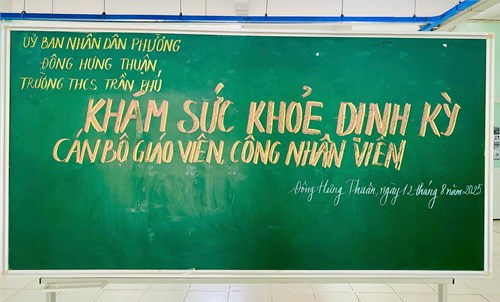 UỶ BAN NHÂN DÂN PHƯỜNG
ĐÔNG HƯNG THUẬN
TRƯỜNG THCS TRẦN PHÚ
KHÁM SỨC KHOẺ ĐỊNH KỲ
CÁN BỘ GIÁO VIÊN, CÔNG NHÂN VIÊN
Đông Hưng Thuận, ngày 12 tháng 8 năm 2025